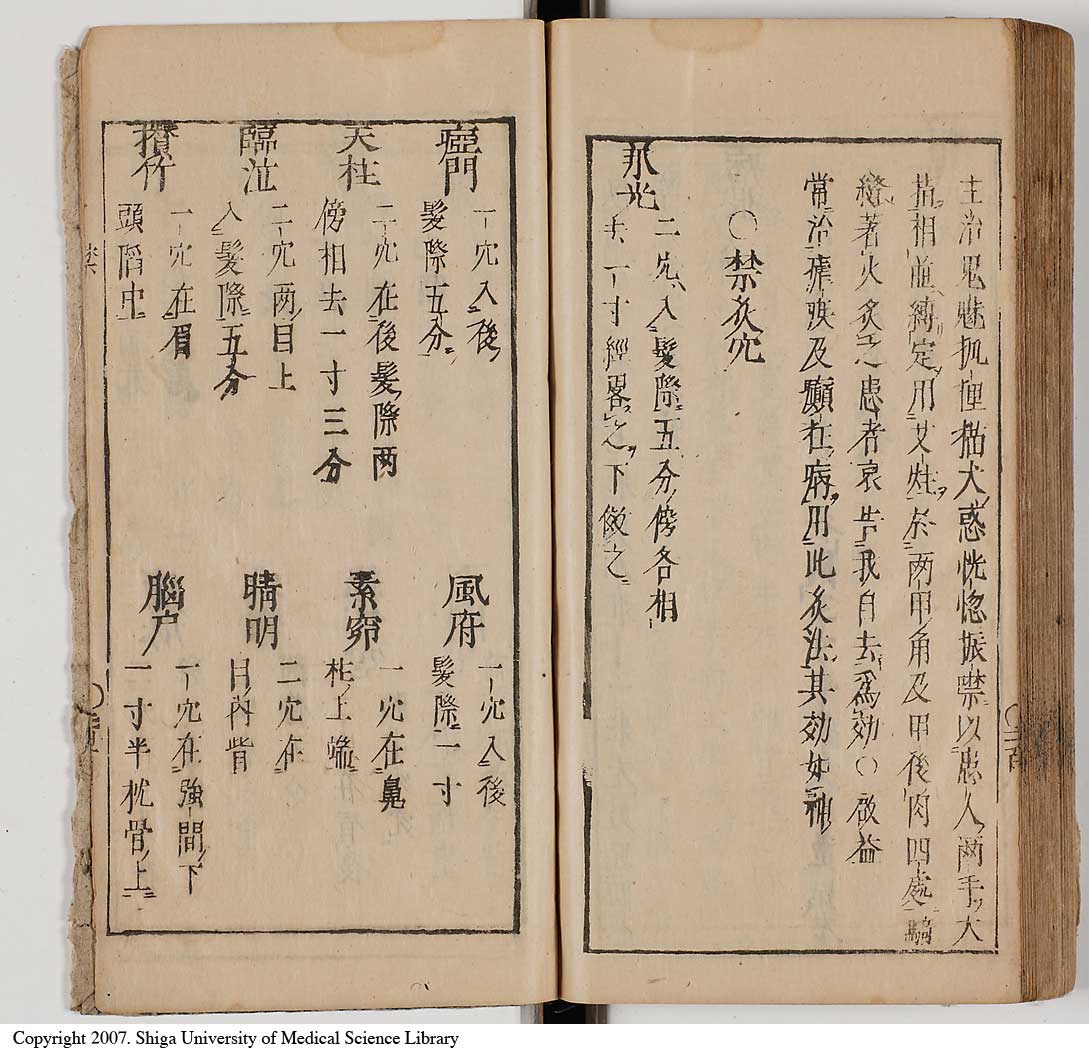 主治鬼魅狐狸猫犬惑恍惚振噤以患人兩手大
指相並縛定用艾炷於兩甲角及甲後肉四處騎
縫著火灸之患者哀告我自去為効○啟益
常治瘧疾及癲狂病用此灸法其効如神
○禁灸穴
承光
二穴入髮際五分傍各相
去一寸經畧之下倣之
瘂門
一穴入後
髮際五分
風府
一穴入後
髮際一寸
天柱
二穴在後髮際两
傍相去一寸三分
素窌
一穴在鼻
柱上端
臨泣
二穴两目上
入髮際五分
睛明
二穴在
目內眥
攅竹
一穴在眉
頭陷中
腦户
一穴在強間下
一寸半枕骨上
Copyright 2007. Shiga University of Medical Science Library